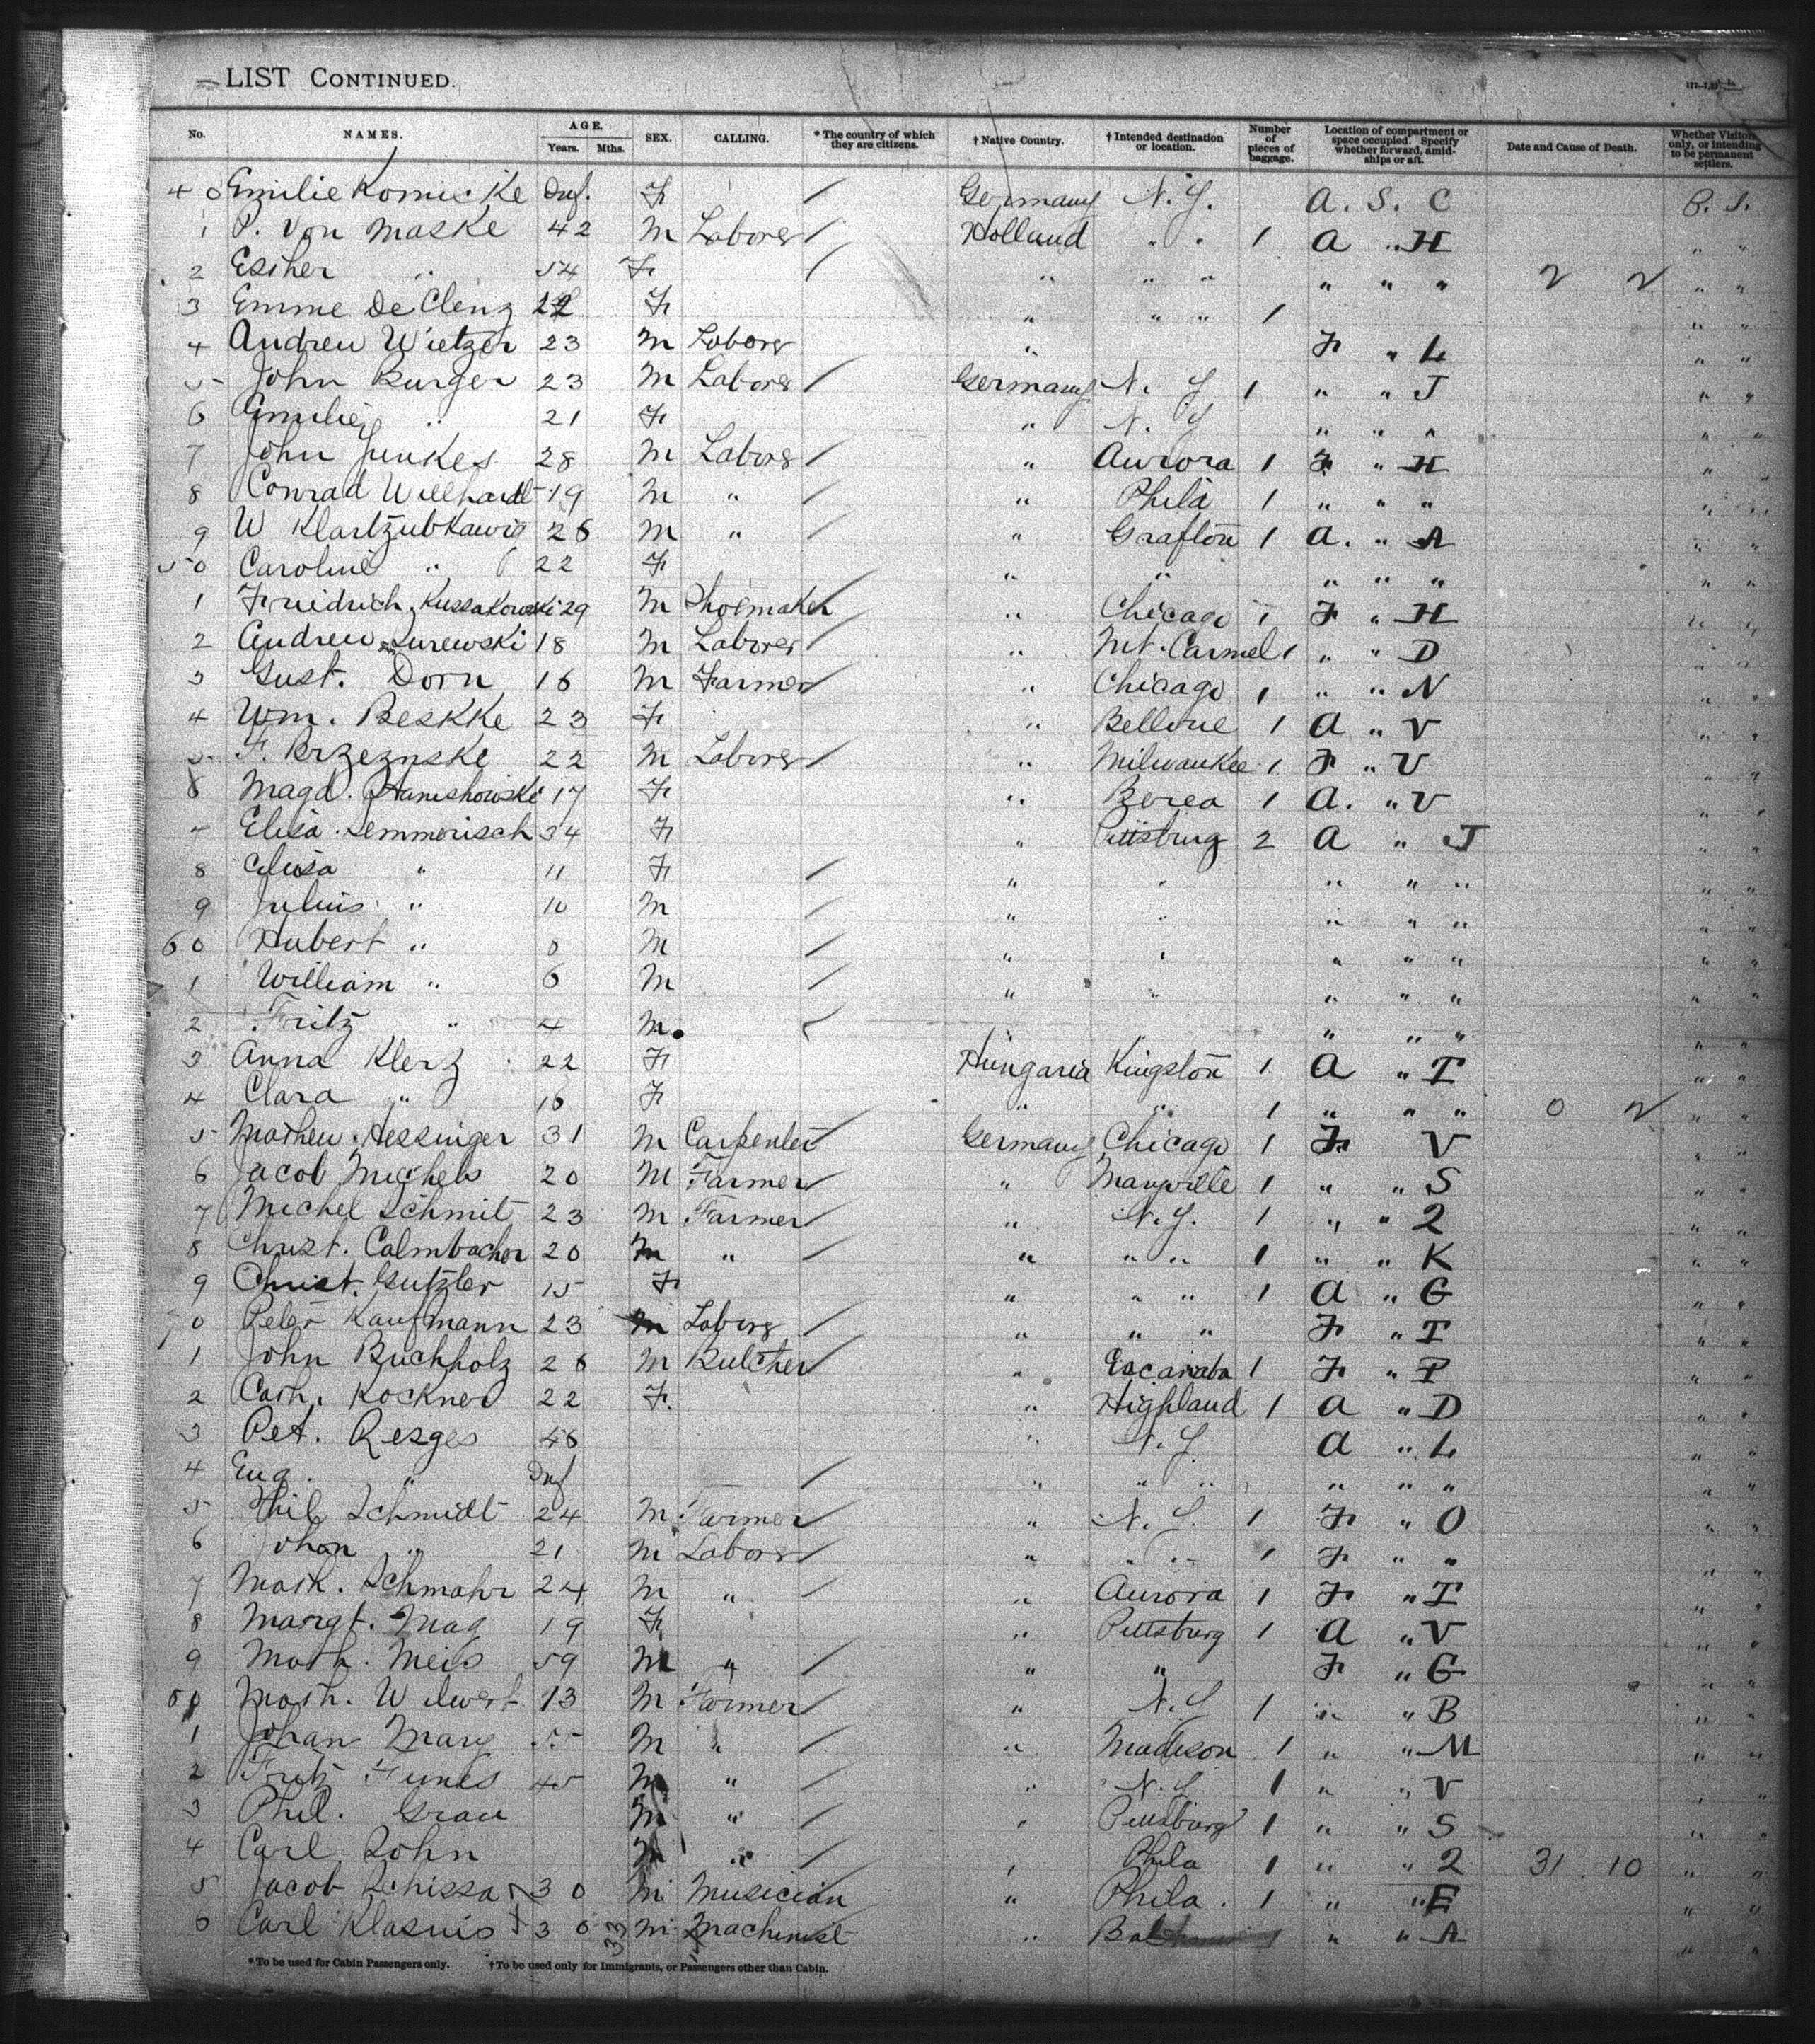 LIST CONTINUED.
No. NAMES. AGE. Years. Mths. SEX. CALLING. * The country of which they are citizens. † Native Country. † Intended destination or location. Number of pieces of baggage. Location of compartment or space occupied. Specify whether forward, amidships or aft. Date and Cause of Death. Whether Visitors only, or intending to be permanent settlers.
40 Emilie Komicke Inf. F / Germany N.Y. A. S. C P. S.
1 P. Von Maske 42 M Laborer / Holland " " 1 A " H " "
2 Esther " 54 F / " " " " " " 2 2 " "
3 Emme De Clenz F " " " 1 " "
4 Andrew Wietzer 23 M Laborer " F " L " "
5 John Burger 23 M Laborer / Germany N. Y 1 " " J " "
6 Emilie " 21 F " N. Y " " " " "
7 John Junkes 28 M Laborer / " Aurora 1 F " H " "
8 Conrad Willhardt 19 M " / " Phila 1 " " " " "
9 W 26 M " / " Grafton 1 A. " A " "
50 Caroline " 22 F " " " " " " "
1 Friedrich Kussakowski 29 M Shoemaker / " Chicago 1 F " H " "
2 Andrew Zurewski 18 M Laborer / " Mt. Carmel 1 " " D " "
3 Gust. Dorn 16 M Farmer / " Chicago 1 " " N " "
4 Wm. Beskke 23 F " Bellvue 1 A " V " "
5 F. Krzeznske 22 M Laborer / " Milwaukee 1 F " V " "
6 Magd. 17 F " Berea 1 A. " V " "
7 Elisa Lemmerisch 34 F " Pittsburg 2 A " J " "
8 Elisa " 11 F / " " " " " " "
9 Julius " 10 M / " " " " " " "
60 Hubert " 8 M / " " " " " " "
1 William " 6 M / " " " " " " "
2 Fritz " 4 M. / " " " " " "
3 Anna Klerz 22 F Hungaria Kingston 1 A " T " "
4 Clara " 16 F " " 1 " " " 0 2 " "
5 Mathew Hessinger 31 M Carpenter / Germany Chicago 1 F V " "
6 Jacob Michels 20 M Farmer / " Maryville 1 " " S " "
7 Michel Schmit 23 M Farmer / " N.Y. 1 " " 2 " "
8 Christ. Calmbacher 20 M " / " " " 1 " " K " "
9 Christ. Gutzler 15 F " " " 1 A " G " "
70 Peter Kaufmann 23 M Laborer / " " " F " T " "
1 John Buchholz 26 M Butcher / " Escanaba 1 F " P " "
2 Cath. Kockner 22 F. " Highland 1 A " D " "
3 Pet. Resges 46 " N.Y. A " L " "
4 Eug. " Inf / " " " " " " " "
5 Phil Schmidt 24 M Farmer / " N.Y. 1 F " O " "
6 Johan " 21 M Laborer / " " " 1 F " " " "
7 Math. Schmahr 24 M " / " Aurora 1 F " T " "
8 Margt. Mag 19 F " Pittsburg 1 A " V " "
9 Math. Meis 59 M " / " " F " G " "
80 Math. Wilwert 13 M Farmer / " N.Y 1 " " B " "
1 Johan Marx 55 M " / " Madison 1 " " M " "
2 Fritz Funes 45 M " / " N.Y. 1 " " V " "
3 Phil. Grau M " / " Pittsburg 1 " " S " "
4 Carl Rohn M " / " Phila 1 " " 2 31 10 " "
5 Jacob Schissa 30 M Musician " Phila. 1 " " E " "
6 Carl Klasnis 30 33 M Machinist " " " A " "
* To be used for Cabin Passengers only. † To be used only for Immigrants, or Passengers other than Cabin.